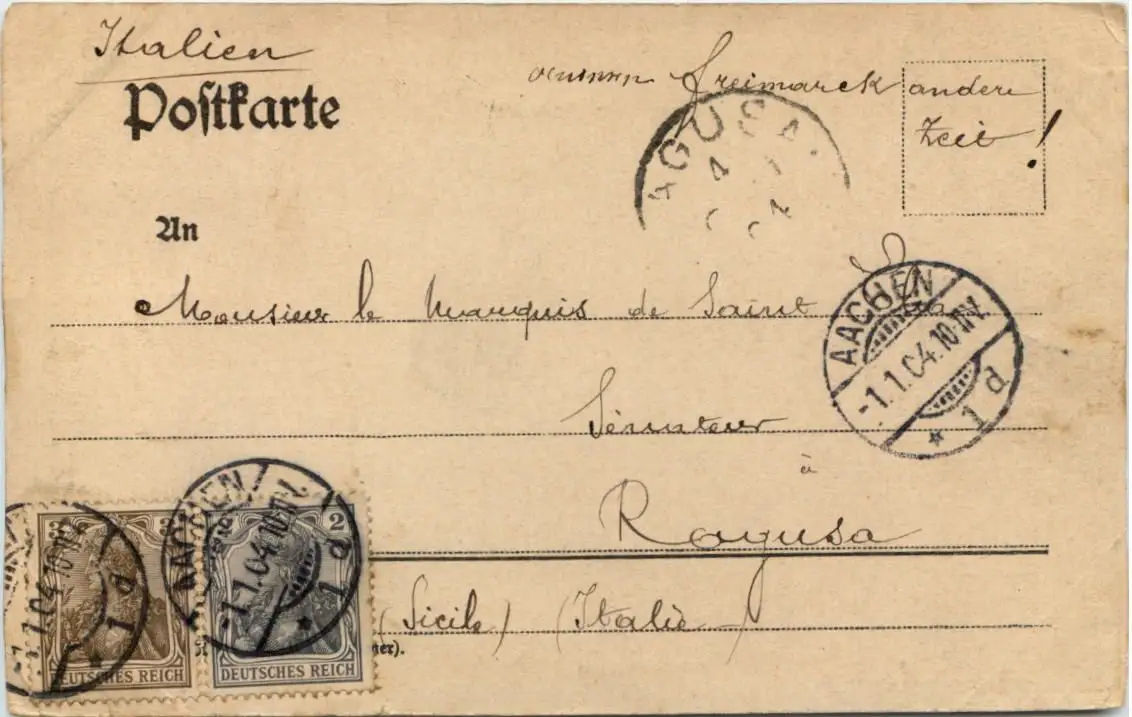 Italien
Postkarte
freimarck andere
Zeit!
AGUSA.
An
Monsieur le Marquis de Saint
AACHEN
-1.1.04.10-11V.
1 d
Sénateur
à
Ragusa
(Sicile) (Italie)
AACHEN
-1.1.04.10-11V.
1 d
-1.1.04.10-11V.
1 d
3
2
DEUTSCHES REICH
DEUTSCHES REICH